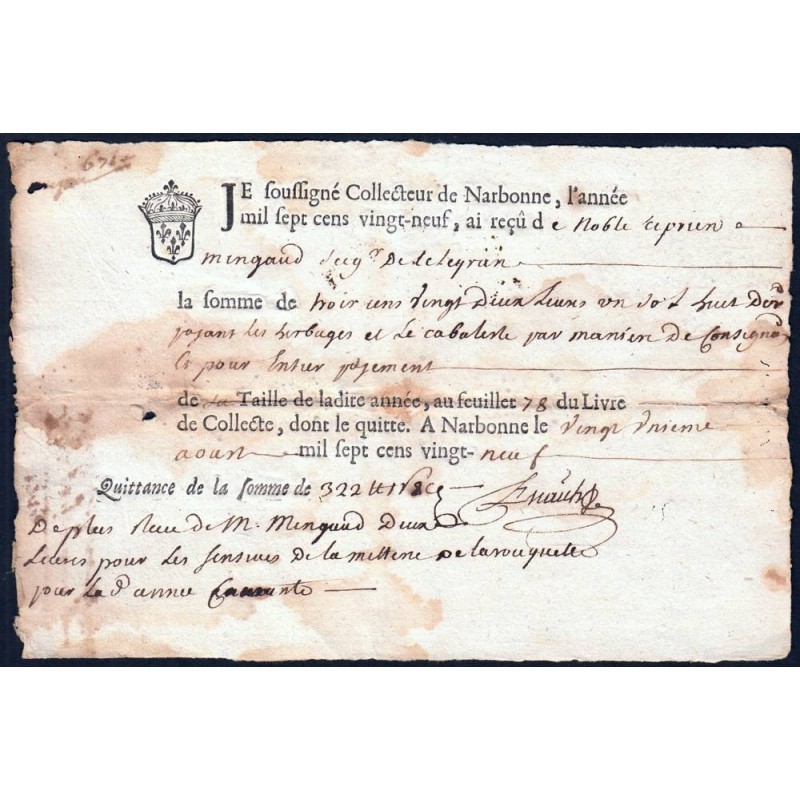 67
JE soussigné Collecteur de Narbonne, l'année
mil sept cens vingt-neuf, ai reçû de Noble
mengaud seigr. De Celeyran
la somme de trois cens vingt Deux livres un sol huit Ders
pajant les herbages et le cabaliste par maniere De Consigna
Et pour Entier pajement
de La Taille de ladite année, au feuillet 78 du Livre
de Collecte, dont le quitte. A Narbonne le vingt unieme
aoust mil sept cens vingt-neuf
Quittance de la somme de 322
De plus Receu de Mr. Mengaud Deux
Livres pour Les sensives de La metterie De Larouquette
pour La d. année Courante